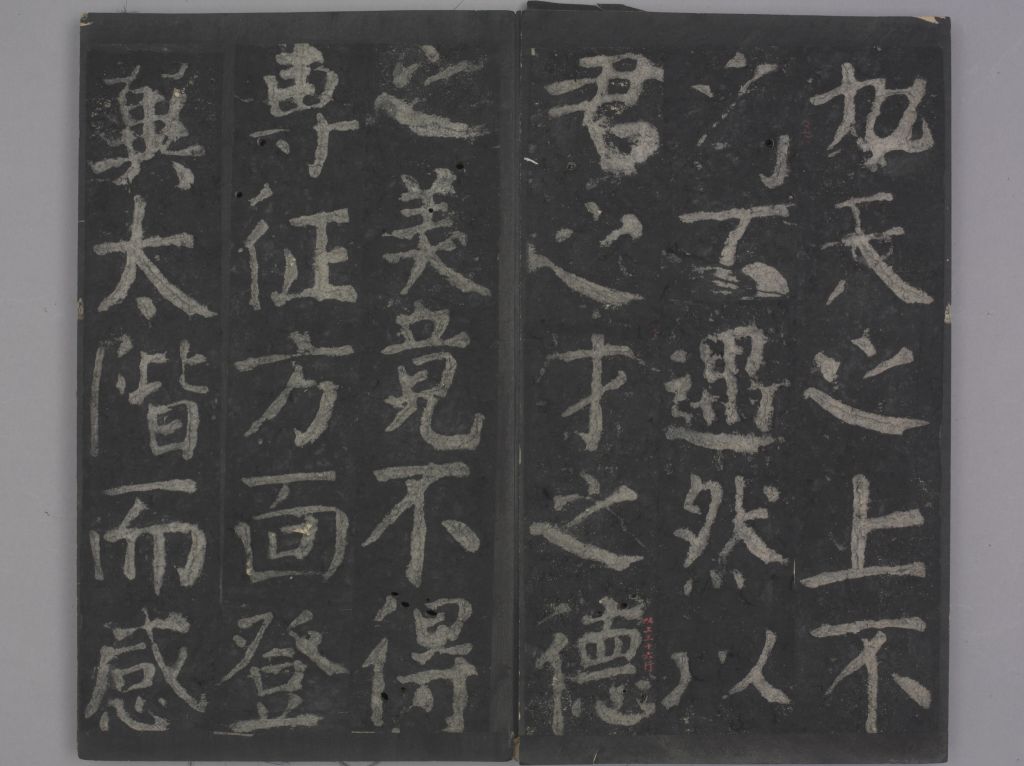 天之上不
為不遇然以
君之才之德
之美竟不得
專征方面登
翼太階而感